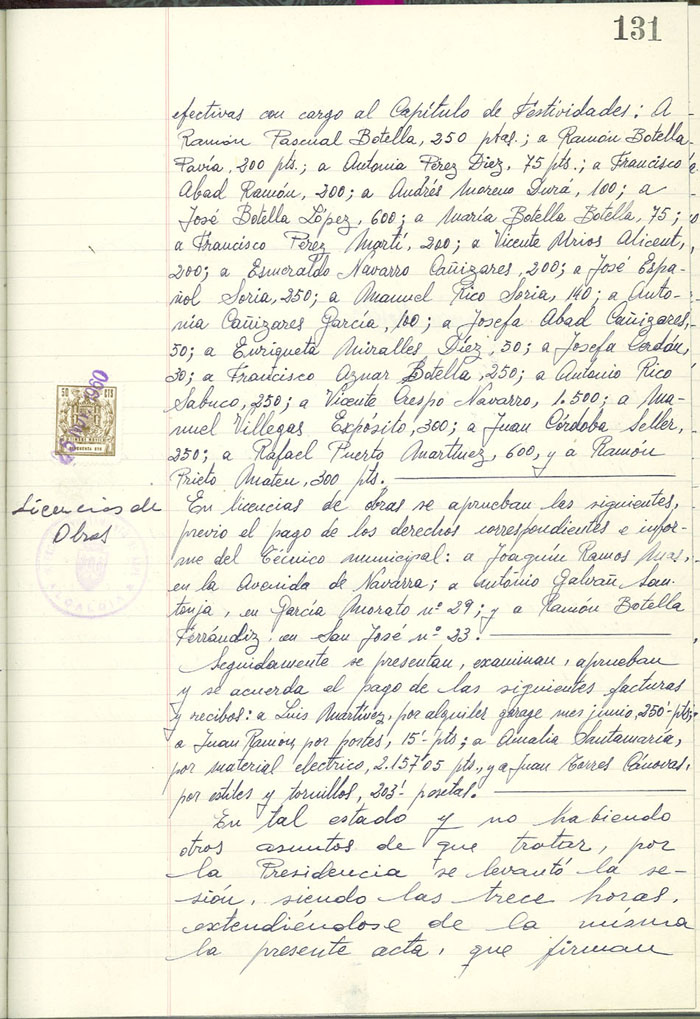 131
efectivas con cargo al Capítulo de Festividades: A
Ramón Pascual Botella, 250 ptas.; a Ramón Botella
Pavía, 200 pts.; a Antonia Pérez Díez, 75 pts.; a Francisco
Abad Ramón, 200; a Andrés Moreno Durá, 100; a
José Botella López, 600; a María Botella Botella, 75;
a Francisco Pérez Martí, 200; a Vicente Mrios Alicent,
200; a Esmeraldo Navarro Cañizares, 200; a José Espa-
ñol Soria, 250; a Manuel Rico Soria, 140; a Anto-
nia Cañizares García, 100; a Josefa Abad Cañizares,
50; a Enriqueta Miralles Díez, 50; a Josefa Cerdán,
30; a Francisco Aznar Botella, 250; a Antonio Rico
Sabuco, 250; a Vicente Crespo Navarro, 1.500; a Ma-
nuel Villegas Expósito, 300; a Juan Córdoba Seller,
250; a Rafael Puerto Martínez, 600, y a Ramón
Prieto Mateu, 300 pts.
50 CTS
1960
Licencias de
Obras
ALCALDIA
En licencias de obras se aprueban las siguientes,
previo el pago de los derechos correspondientes e infor-
me del Técnico municipal: a Joaquín Ramos
en la Avenida de Navarra; a Antonio Galvañ San-
tonja, en García Morato nº 29; y a Ramón Botella
Ferrándiz, en San José nº 23.
Seguidamente se presentan, examinan, aprueban
y se acuerda el pago de las siguientes facturas
y recibos: a Luis Martínez, por alquiler garage mes junio, 250'- pts;
a Juan Ramón, por portes, 15'- pts; a Amalia Santamaría,
por material electrico, 2.157'05 pts., y a Juan Torres Cánovas,
por astiles y tornillos, 203'- pesetas.
En tal estado y no habiendo
otros asuntos de que tratar, por
la Presidencia se levantó la se-
sión, siendo las trece horas,
extendiéndose de la misma
la presente acta, que firman